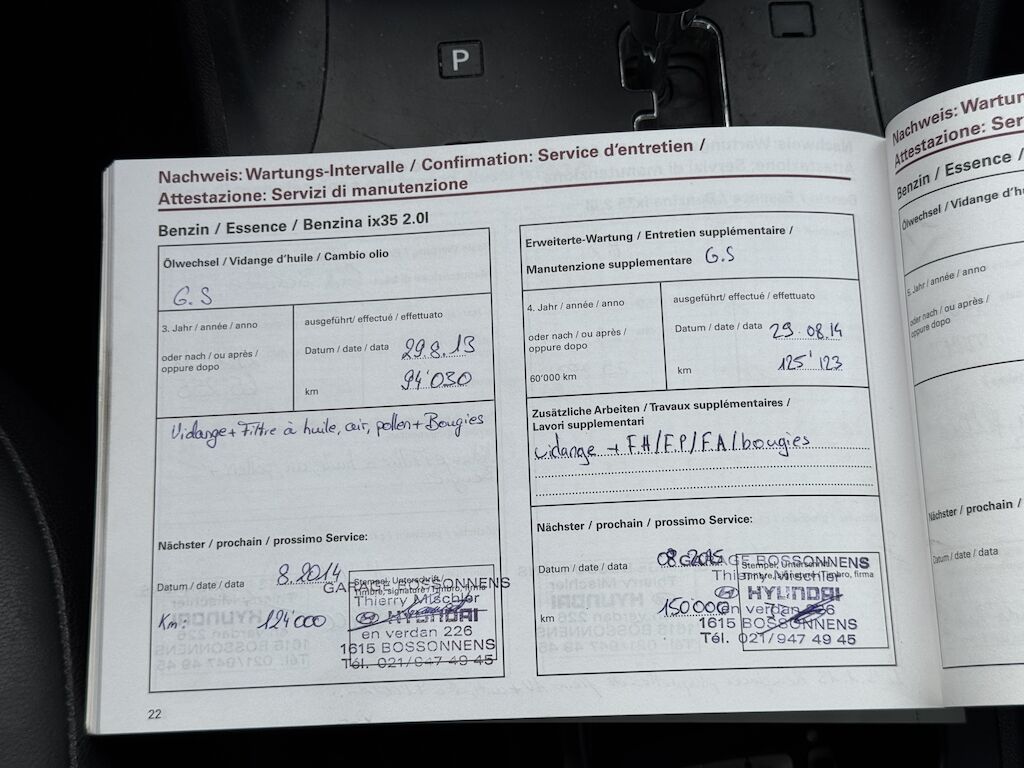 P
Nachweis: Wartungs-Intervalle / Confirmation: Service d'entretien /
Attestazione: Servizi di manutenzione
Benzin / Essence / Benzina ix35 2.0l
Ölwechsel / Vidange d'huile / Cambio olio
G.S
3. Jahr / année / anno
oder nach / ou après /
oppure dopo
ausgeführt/ effectué / effettuato
Datum / date / data 29.8.13
km 94'030
Vidange + Filtre à huile, air, pollen + Bougies
Nächster / prochain / prossimo Service:
Datum / date / data 8.2014
Km: 124'000
Stempel, Unterschrift
Timbre, signature / Timbro, firma
GARAGE BOSSONNENS
Thierry Mischler
HYUNDAI
en verdan 226
1615 BOSSONNENS
Tél. 021/947 49 45
22
Erweiterte-Wartung / Entretien supplémentaire /
Manutenzione supplementare G.S
4. Jahr / année / anno
oder nach / ou après /
oppure dopo
60'000 km
ausgeführt/ effectué / effettuato
Datum / date / data 29.08.14
km 125'123
Zusätzliche Arbeiten / Travaux supplémentaires /
Lavori supplementari
vidange + F.H/F.P/F.A/bougies
Nächster / prochain / prossimo Service:
Datum / date / data 08.2015
km 150'000
Stempel, Unterschrift
Timbre, signature / Timbro, firma
GARAGE BOSSONNENS
Thierry Mischler
HYUNDAI
en verdan 226
1615 BOSSONNENS
Tél. 021/947 49 45
Nachweis: Wartun
Attestazione: Ser
Benzin / Essence /
Ölwechsel / Vidange d'hu
5. Jahr / année / anno
oder nach / ou après /
oppure dopo
Nächster / prochain /
Datum / date / data
km